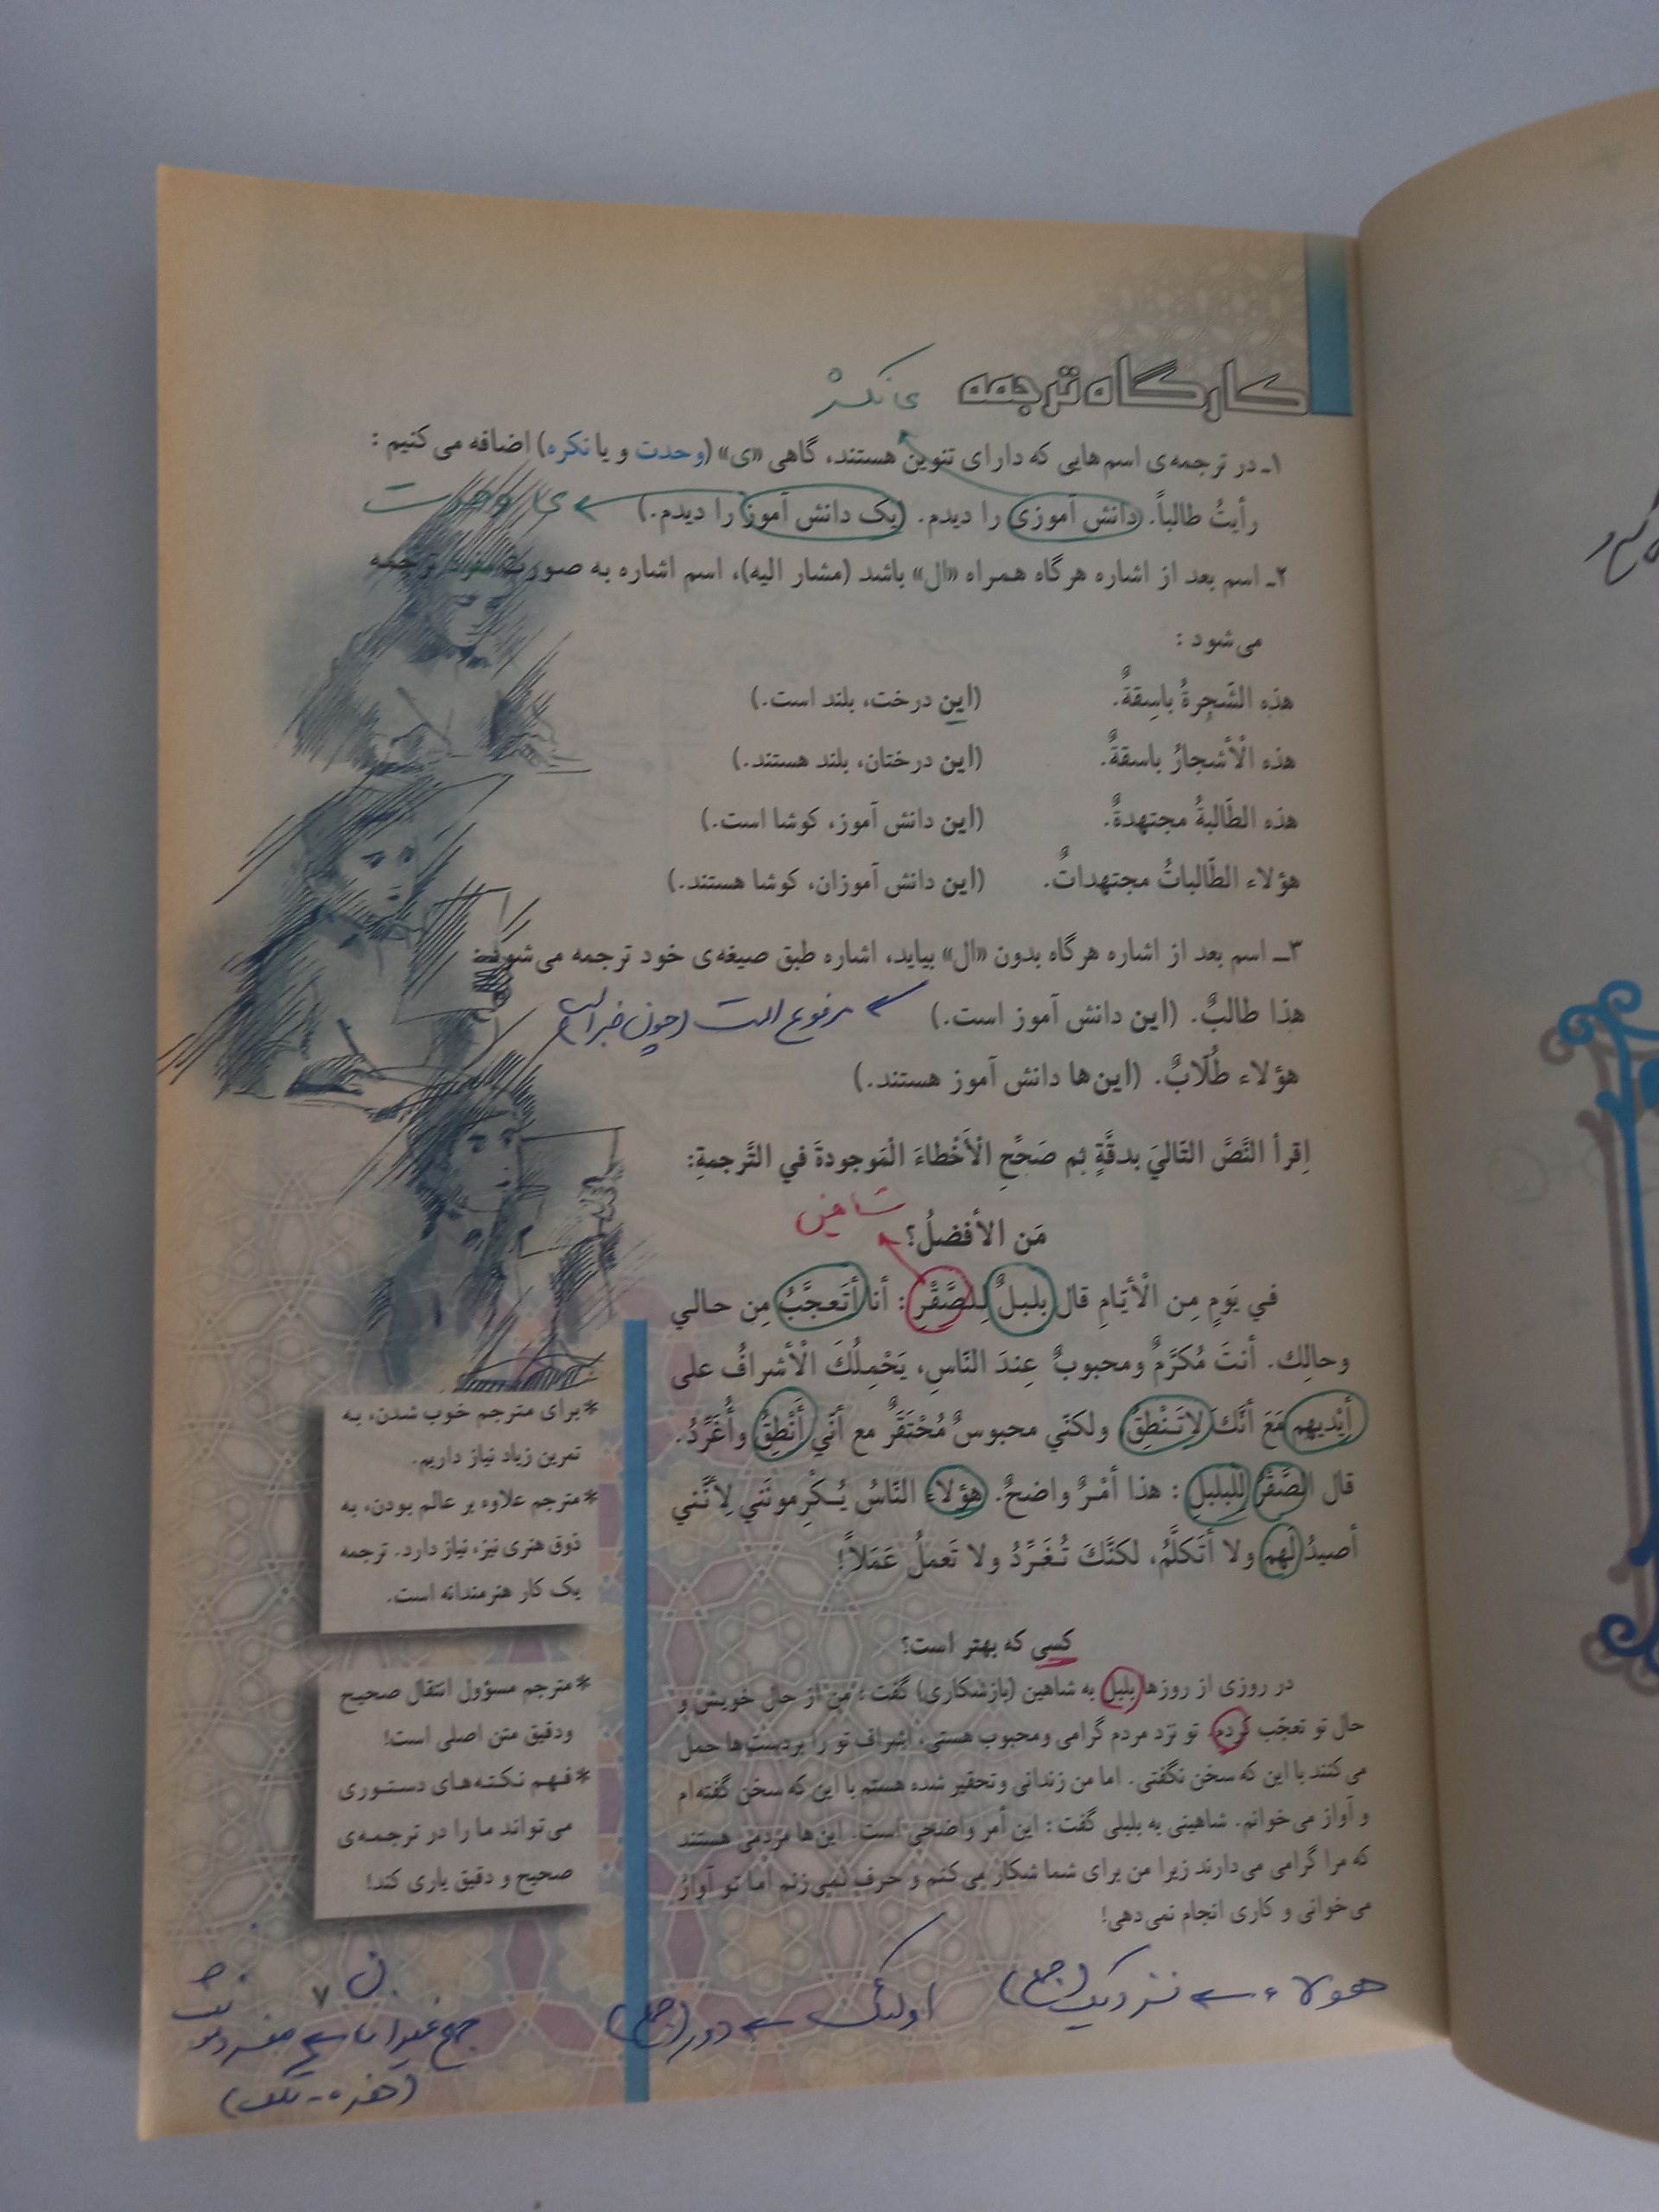 کارگاه ترجمه
ی نکره
۱ـ در ترجمه‌ی اسم‌هایی که دارای تنوین هستند، گاهی «ی» (وحدت و یا نکره) اضافه می‌کنیم :
رأیتُ طالباً. دانش آموزی را دیدم. (یک دانش آموز را دیدم.)
ی وحدت
۲ـ اسم بعد از اشاره هرگاه همراه «ال» باشد (مشار الیه)، اسم اشاره به صورت مفرد ترجمه
می‌شود :
هذِه الشَّجرةُ باسِقةٌ. (این درخت، بلند است.)
هذه الْأشجارُ باسقةٌ. (این درختان، بلند هستند.)
هذه الطّالبةُ مجتهدةٌ. (این دانش آموز، کوشا است.)
هؤلاء الطّالباتُ مجتهداتٌ. (این دانش آموزان، کوشا هستند.)
۳ــ اسم بعد از اشاره هرگاه بدون «ال» بیاید، اشاره طبق صیغه‌ی خود ترجمه می‌شود:
هذا طالبٌ. (این دانش آموز است.) مرفوع است (چون خبر است)
هؤلاء طُلّابٌ. (این‌ها دانش آموز هستند.)
اِقرأ النَّصَّ التّاليَ بدقَّةٍ ثم صَحِّحِ الْأَخْطاءَ الْمَوجودةَ في التَّرجمةِ:
شاهین
مَن الأفضلُ؟
في يَومٍ مِن الْأيّامِ قال بلبلٌ لِلصَّقْرِ : أنا أتَعجَّبُ مِن حالي
وحالِك. أنتَ مُكرَّمٌ ومحبوبٌ عِندَ النّاسِ، يَحْمِلُكَ الْأشرافُ على
أيْديهم مَعَ أنَّكَ لاتَـنْطِقُ، ولكنّي محبوسٌ مُحْتَقَرٌ مع أنّي أَنْطِقُ وأُغَرِّدُ.
قال الصَّقْرُ لِلْبلبلِ : هذا أمْـرٌ واضحٌ. هؤلاء النّاسُ يُـكْرِمونَني لِأنَّني
أصيدُ لَهم ولا أتَكلَّمُ، لكنَّكَ تُـغَـرِّدُ ولا تَعملُ عَمَلاً!
کسی که بهتر است؟
در روزی از روزها بلبل به شاهین (بازشکاری) گفت : من از حال خویش و
حال تو تعجّب کردم. تو نزد مردم گرامی ومحبوب هستی، اشراف تو را بردست‌ها حمل
می‌کنند با این که سخن نگفتی. اما من زندانی وتحقیر شده هستم با این که سخن گفته‌ام
و آواز می‌خوانم. شاهینی به بلبلی گفت : این أمر واضحی است. این‌ها مردمی هستند
که مرا گرامی می‌دارند زیرا من برای شما شکار می‌کنم و حرف نمی‌زنم اما تو آواز
می‌خوانی و کاری انجام نمی‌دهی!
*برای مترجم خوب شدن، به
تمرین زیاد نیاز داریم.
*مترجم علاوه بر عالم بودن، به
ذوق هنری نیز، نیاز دارد. ترجمه
یک کار هنرمندانه است.
*مترجم مسؤول انتقال صحیح
ودقیق متن اصلی است!
*فـهـم نـکـتـه‌هـای دسـتـوری
می‌تواند ما را در ترجمـه‌ی
صحیح و دقیق یاری کند!
هولاء ← نزدیک (جمع) اولئک ← دور (جمع)
۷
جمع غیرانسان مفرد مونث
(هذه - تلک)